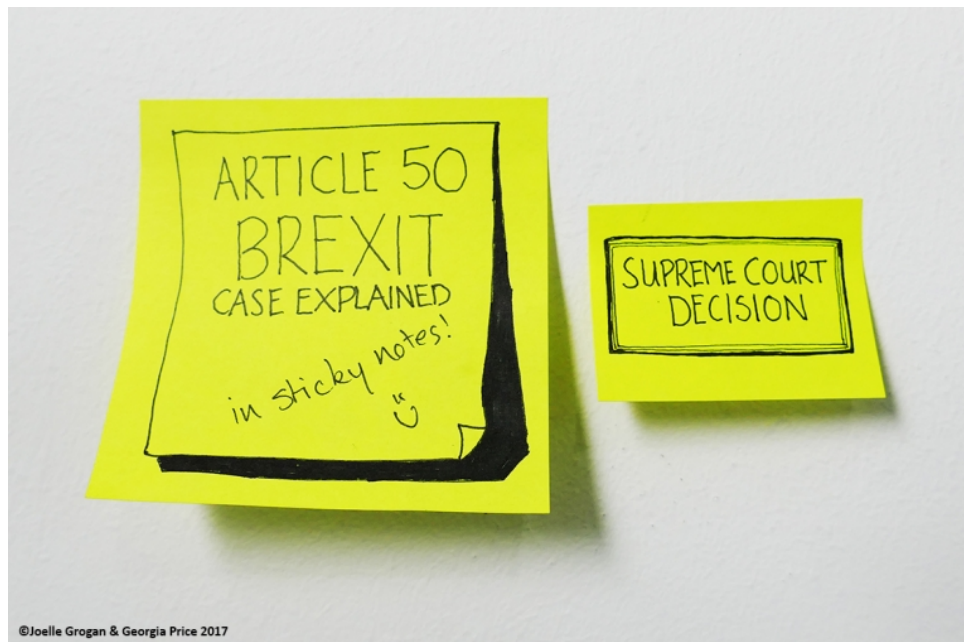 ARTICLE 50
BREXIT
CASE EXPLAINED
in sticky notes!
SUPREME COURT
DECISION
©Joelle Grogan & Georgia Price 2017